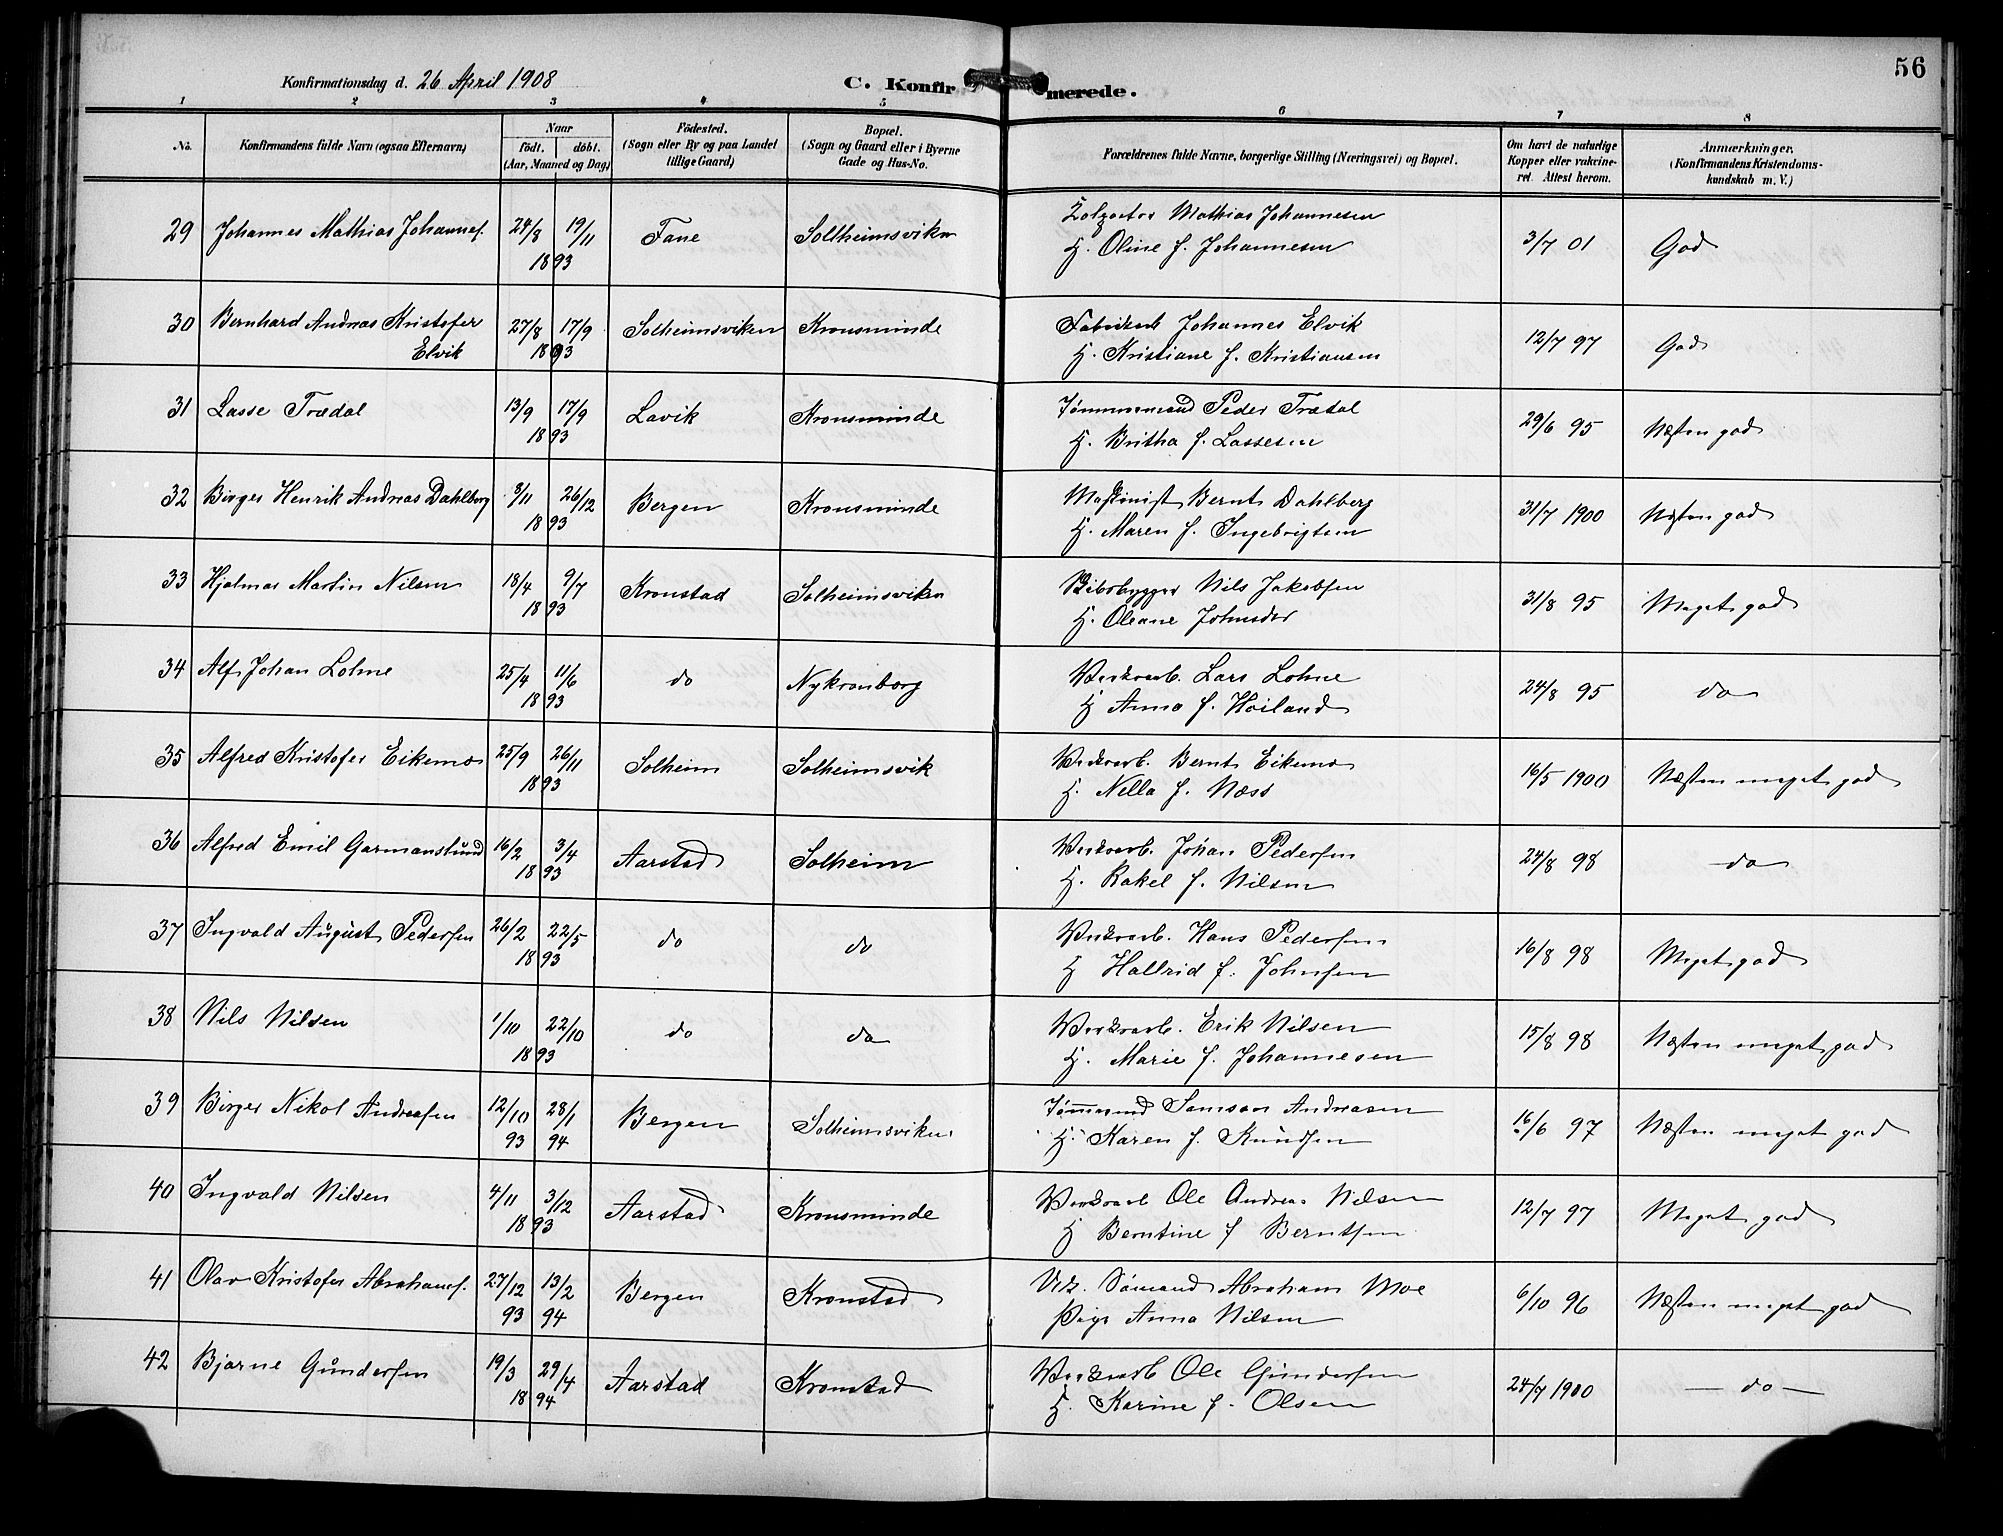 56
Konfirmationsdag d. 26 April 1908
C. Konfirmerede.
1 2 3 4 5 6 7 8
No. Konfirmandens fulde Navn (ogsaa Efternavn) Naar født. døbt. (Aar, Maaned og Dag) Fødested. (Sogn eller By og paa Landet tillige Gaard) Bopæl. (Sogn og Gaard eller i Byerne Gade og Hus-No. Forældrenes fulde Navne, borgerlige Stilling (Næringsvei) og Bopæl. Om havt de naturlige Kopper eller vakcineret. Attest herom. Anmærkninger. (Konfirmandens Kristendomskundskab m. V.)
29 Johannes Mathias Johannes. 24/8 19/11 Fane Solheimsviken Mathias Johannesen 3/7 01 God
1893 H. Oline f. Johannesen
30 Bernhard Andreas Kristofer 27/8 17/9 Solheimsviken Kronsminde Johannes Elvik 12/7 97 God
Elvik 1893 H. Kristiane f. Kristiansen
31 Lasse Trædal 13/9 17/9 Lavik Kronsminde Tømmermand Peder Trætal 29/6 95 Næsten god
1893 H. Britha f. Lassesen
32 Birger Henrik Andreas Dahlberg 8/11 26/12 Bergen Kronsminde Maskinist Bernt Dahlberg 31/7 1900 Næsten god
1893 H. Maren f. Ingebrigtsen
33 Hjalmar Martin Nilsen 18/4 9/7 Kronstad Solheimsviken Skibsbygger Nils Jakobsen 31/8 95 Meget god
1893 H. Oleane Johnsdr
34 Alf Johan Lohne 25/4 11/6 do Nykronborg Verksarb. Lars Lohne 24/8 95 do
1893 H Anna f. Høiland
35 Alfred Kristofer Eikemo 25/9 26/11 Solheim Solheimsvik Verksarb. Bernt Eikemo 16/5 1900 Næsten meget god
1893 H. Nella f. Næss
36 Alfred Emil Garmanslund 16/2 3/4 Aarstad Solheim Verksarb. Johan Pedersen 24/8 98 do
1893 H. Rakel f. Nilsen
37 Ingvald August Pedersen 26/2 22/5 do do Verksarb. Hans Pedersen 16/8 98 Meget god
1893 H Hallrid f. Johnsen
38 Nils Nilsen 1/10 22/10 do do Verksarb. Erik Nilsen 15/8 98 Næsten meget god
1893 H. Marie f. Johannesen
39 Birger Nikol Andreasen 12/10 28/1 Bergen Solheimsviken Tømmermd Samson Andreasen 16/6 97 Næsten meget god
93 94 H. Karen f. Knudsen
40 Ingvald Nilsen 4/11 3/12 Aarstad Kronsminde Verksarb Ole Andreas Nilsen 12/7 97 Meget god
1893 H Berntine f Berntsen
41 Olav Kristofer Abrahams. 27/12 13/2 Bergen Kronstad Sømand Abraham Moe 6/10 96 Næsten meget god
93 94 Pige Anna Nilsen
42 Bjarne Gundersen 19/3 29/4 Aarstad Kronstad Verksarb Ole Gundersen 24/7 1900 do
1894 H. Karine f. Olsen